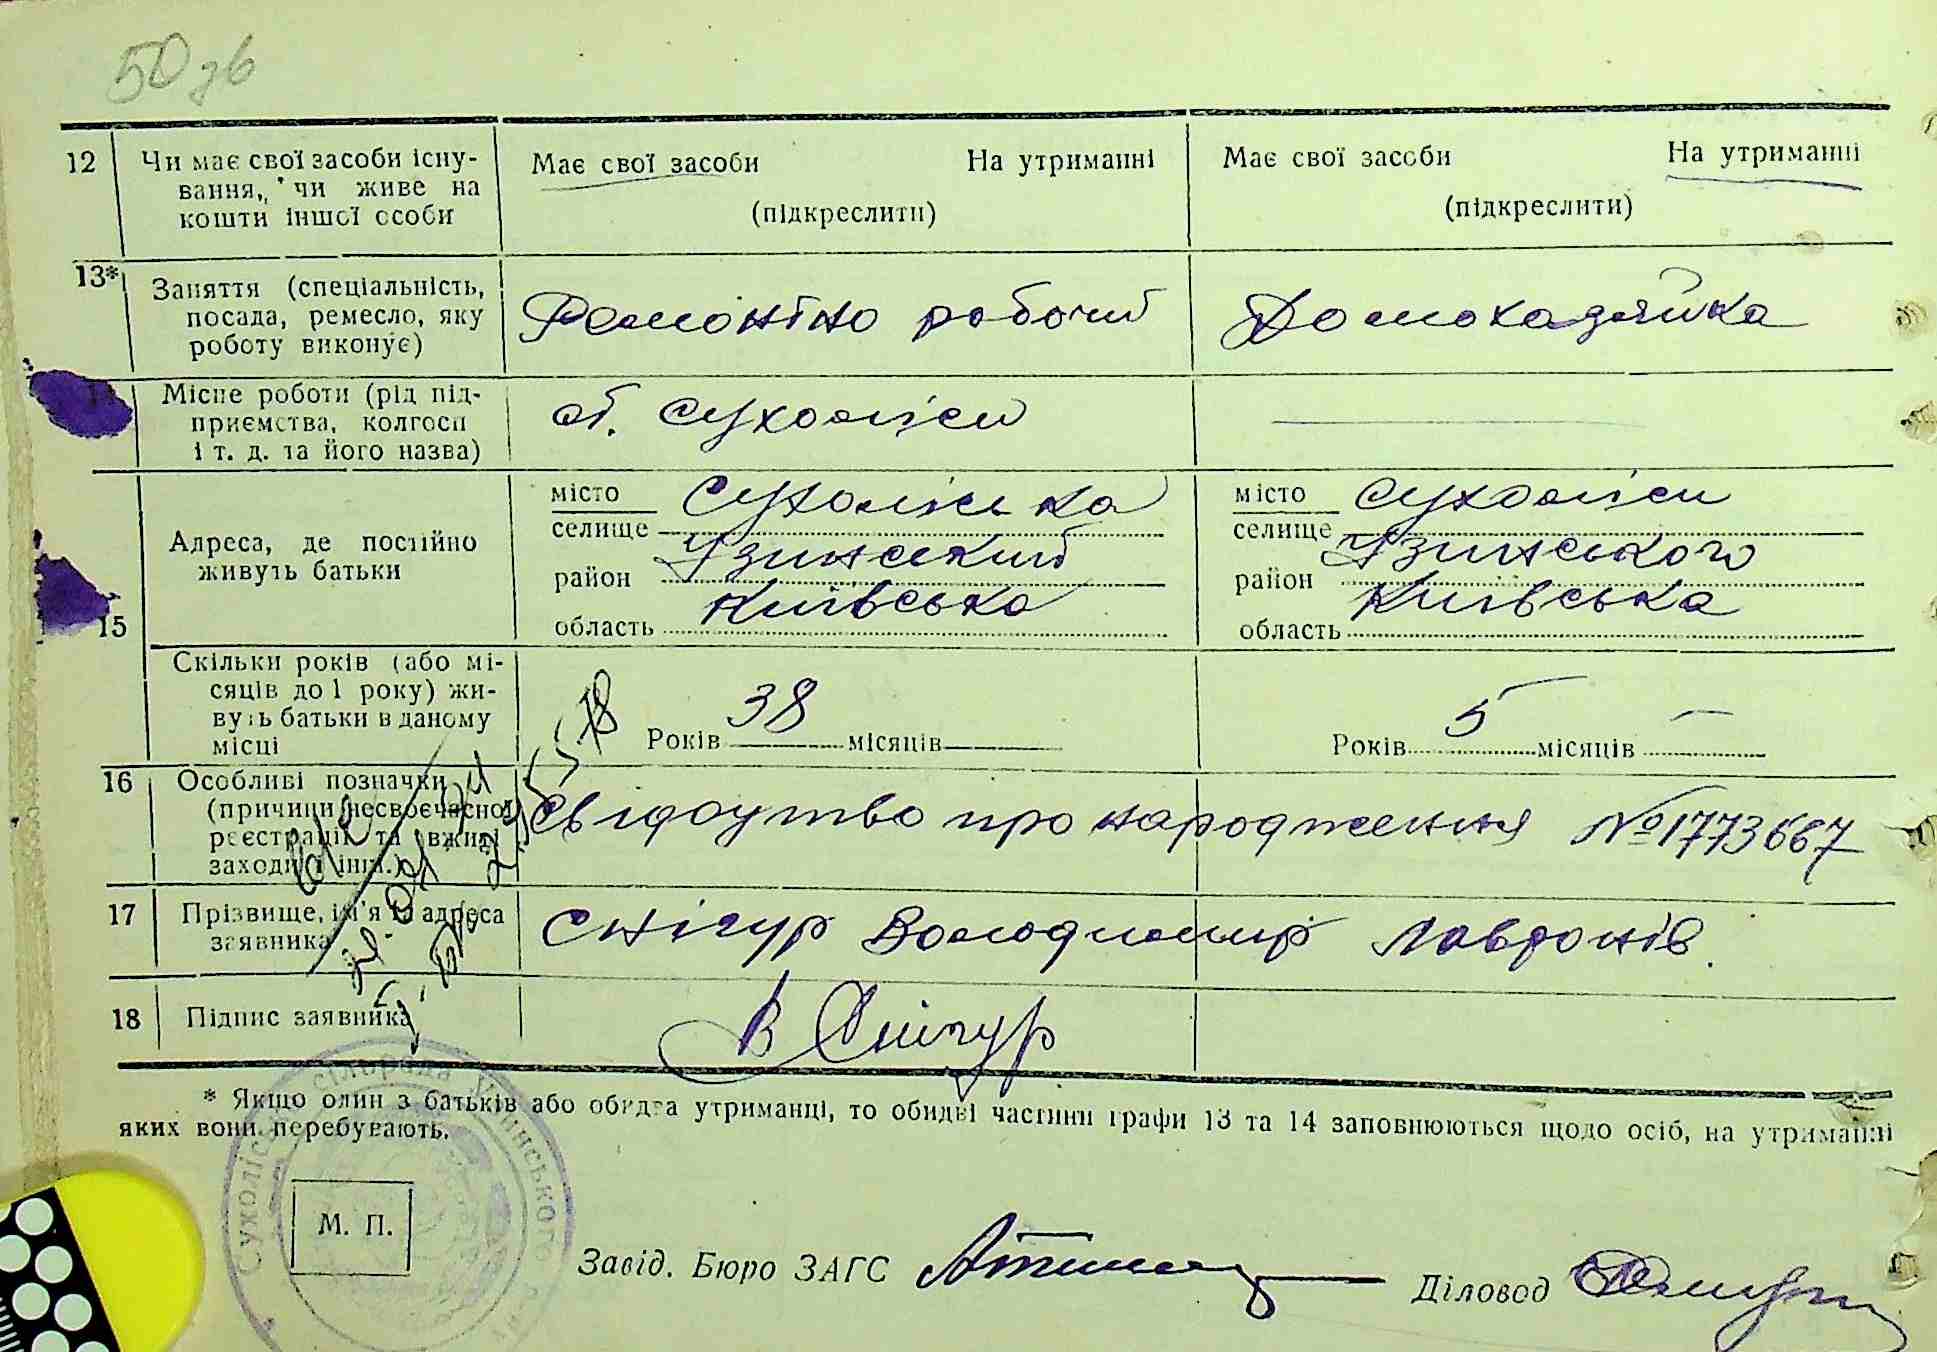 50 зв
12 Чи має свої засоби існу-
вання, чи живе на
кошти іншої особи
Має свої засоби На утриманні
(підкреслити)
Має свої засоби На утриманні
(підкреслити)
13* Заняття (спеціальність,
посада, ремесло, яку
роботу виконує)
Ремонтно робочий
Домохазяйка
Місце роботи (рід під-
приємства, колгосп
і т. д. та його назва)
ст. Сухоліси
15 Адреса, де постійно
живуть батьки
місто Сухоліська
селище
район Узинський
область Київська
місто Сухоліси
селище
район Узинського
область Київська
Скільки років (або мі-
сяців до 1 року) жи-
вуть батьки в даному
місці
Років 38 місяців
Років 5 місяців —
16 Особливі позначки
(причини несвоєчасної
реєстрації та вжиті
заходи і інш.)
Свідоцтво про народження №1773667
17 Прізвище, ім'я та адреса
заявника
Снігур Володимир Лавронів.
18 Підпис заявника
В Снігур
* Якщо один з батьків або обидва утриманці, то обидві частини графи 13 та 14 заповнюються щодо осіб, на утриманні
яких вони перебувають.
Сухоліс сільрада Узинського
М. П.
Завід. Бюро ЗАГС
Діловод